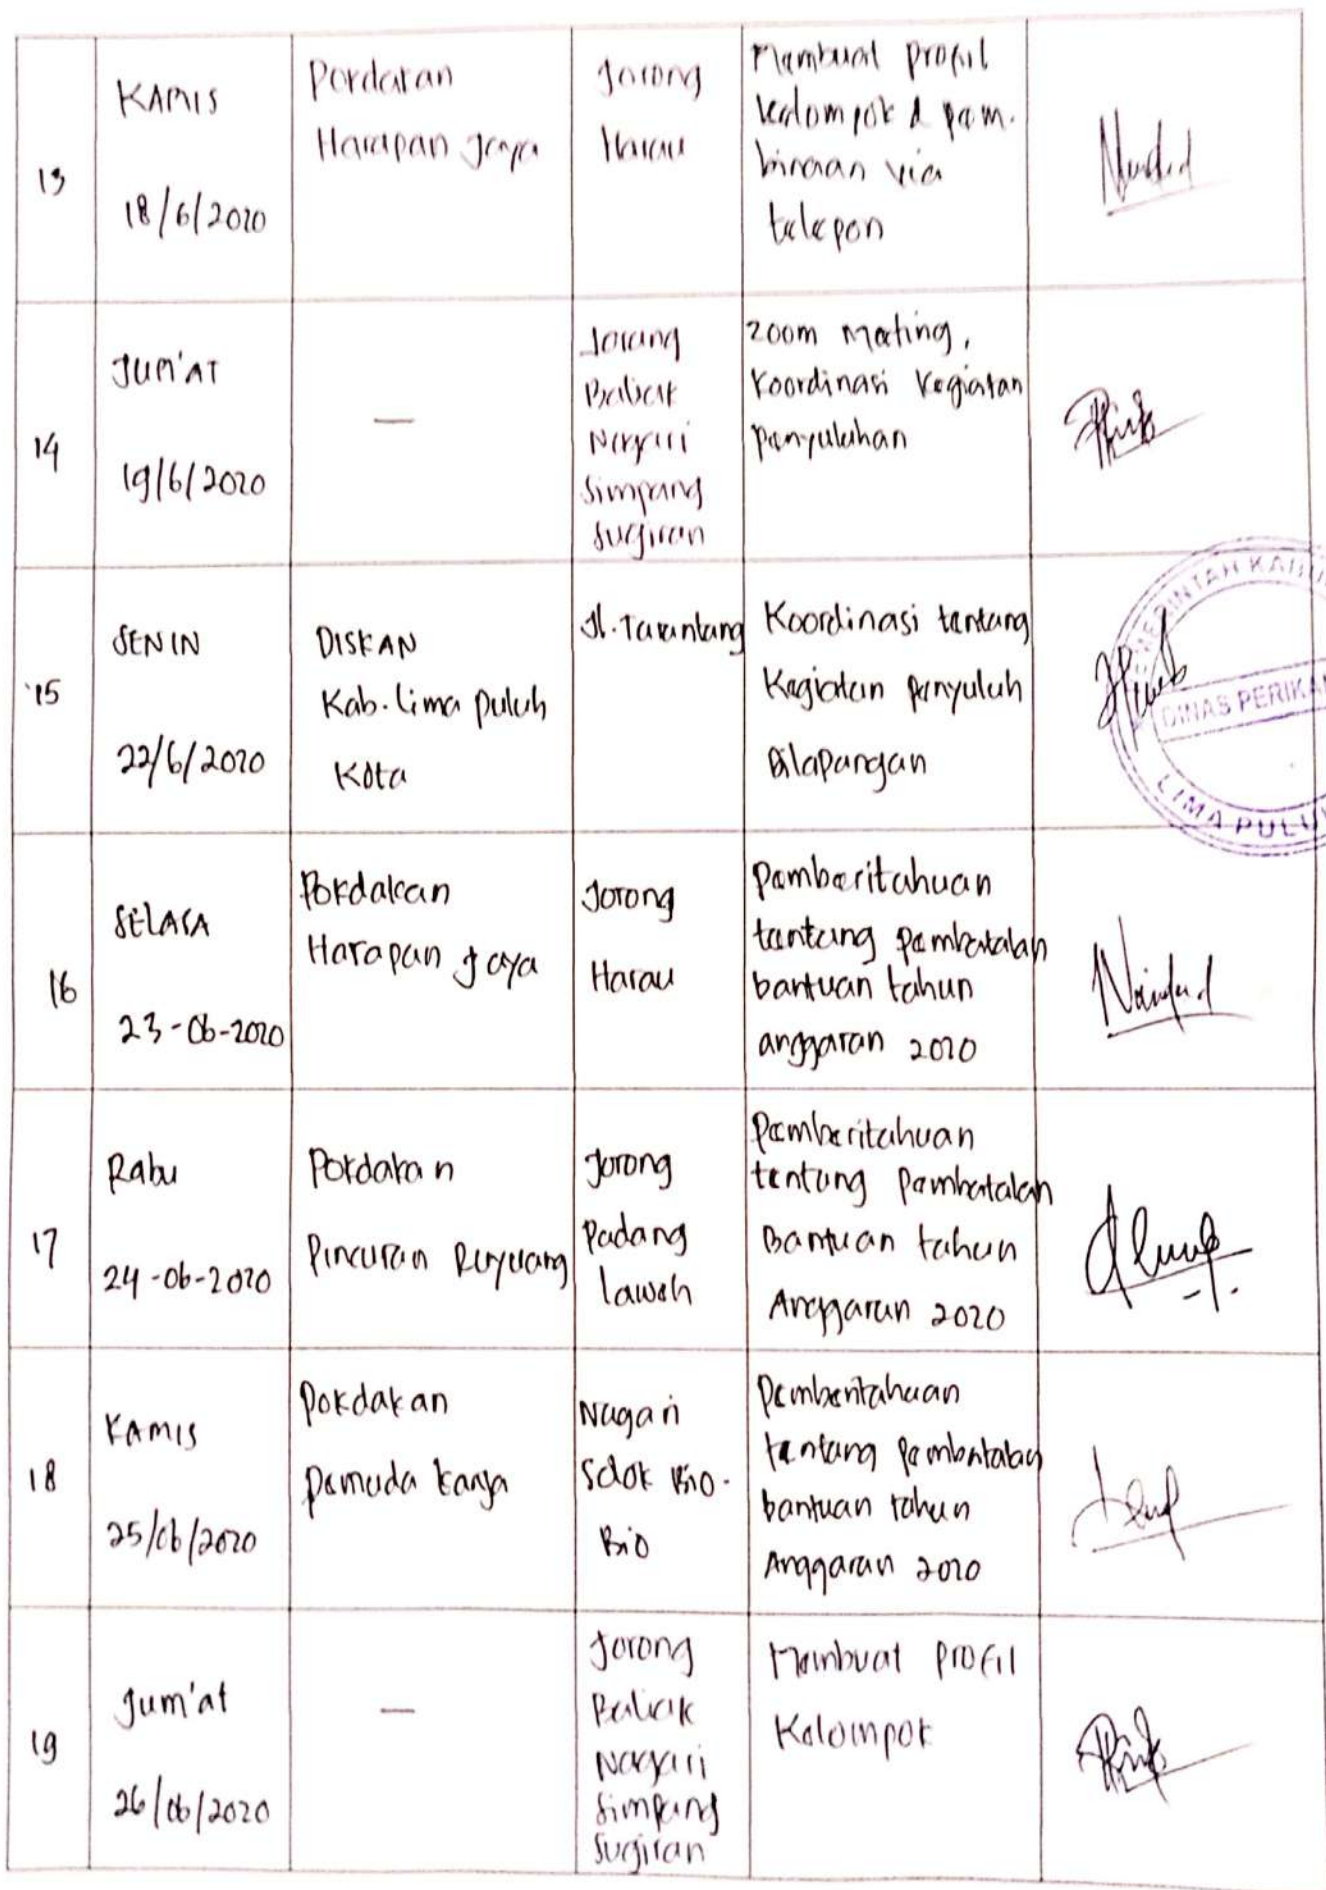 13
KAMIS
18/6/2020
Pordatan
Harapan Jaya
Jorong
Harau
Membuat profil
kelompok & pem-
binaan via
telepon
14
JUM'AT
19/6/2020
—
Jorong
Baliak
Nagari
Simpang
Sugiran
Zoom Meeting,
Koordinasi Kegiatan
Penyuluhan
15
SENIN
22/6/2020
DISKAN
Kab. Lima Puluh
Kota
Jl. Tarantang
Koordinasi tentang
Kegiatan penyuluh
Dilapangan
DINAS PERIKA
LIMA PULU
16
SELASA
23-06-2020
Pokdakan
Harapan Jaya
Jorong
Harau
Pemberitahuan
tentang pembatalan
bantuan tahun
anggaran 2020
17
Rabu
24-06-2020
Pokdakan
Pincuran
Jorong
Padang
Laweh
Pemberitahuan
tentang Pembatalan
Bantuan tahun
Anggaran 2020
18
KAMIS
25/06/2020
Pokdakan
Pemuda Karya
Nagari
Solok Bio-
Bio
Pemberitahuan
tentang Pembatalan
bantuan tahun
Anggaran 2020
19
Jum'at
26/06/2020
—
Jorong
Baliak
Nagari
Simpang
Sugiran
Membuat Profil
Kelompok